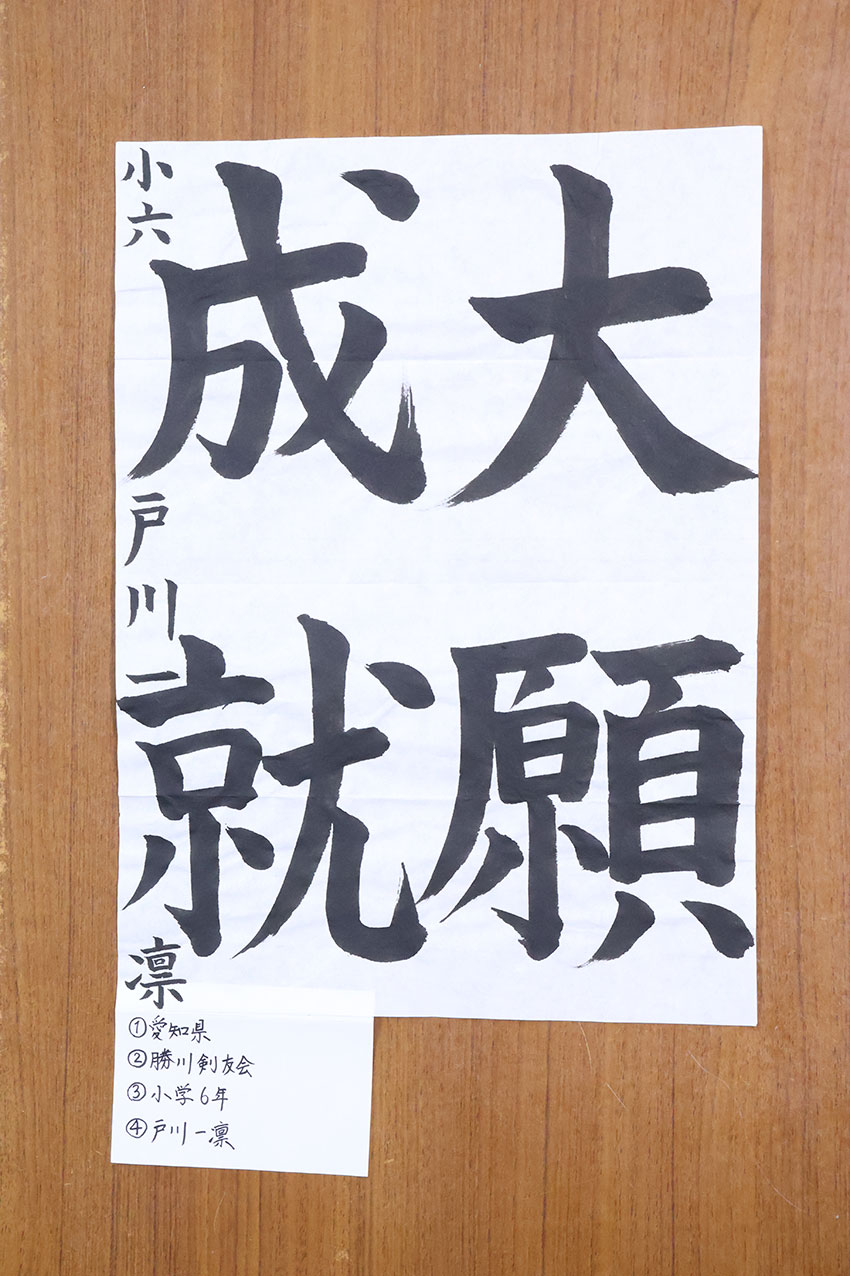 大願
成就
小六 戸川一凛
①愛知県
②勝川剣友会
③小学6年
④戸川一凛